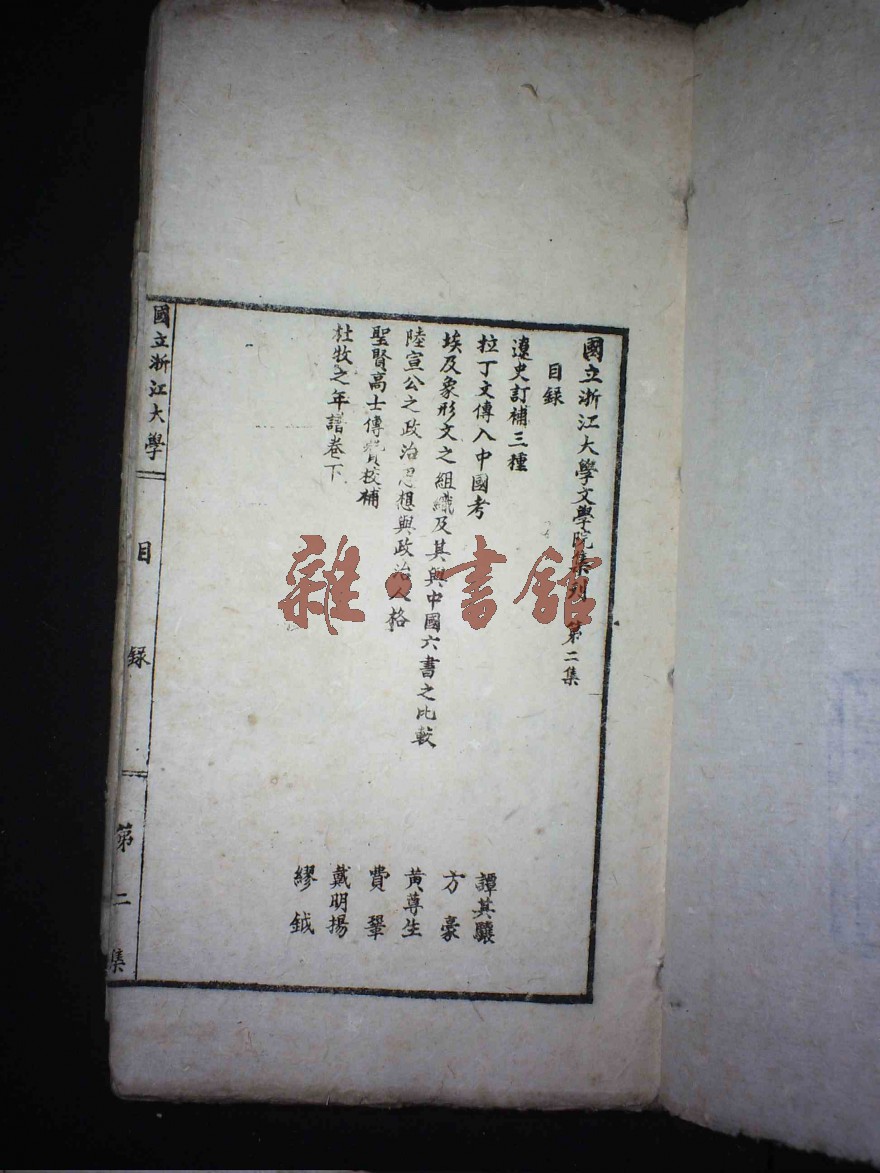 國立浙江大學文學院集刊 第二集
目録
遼史訂補三種 譚其驤
拉丁文傳入中國考 方豪
埃及象形文之組織及其與中國六書之比較 黃尊生
陸宣公之政治思想與政治人格 費鞏
聖賢高士傳贊校補 戴明揚
杜牧之年譜卷下 繆鉞
國立浙江大學 目録 第二集
雜書館